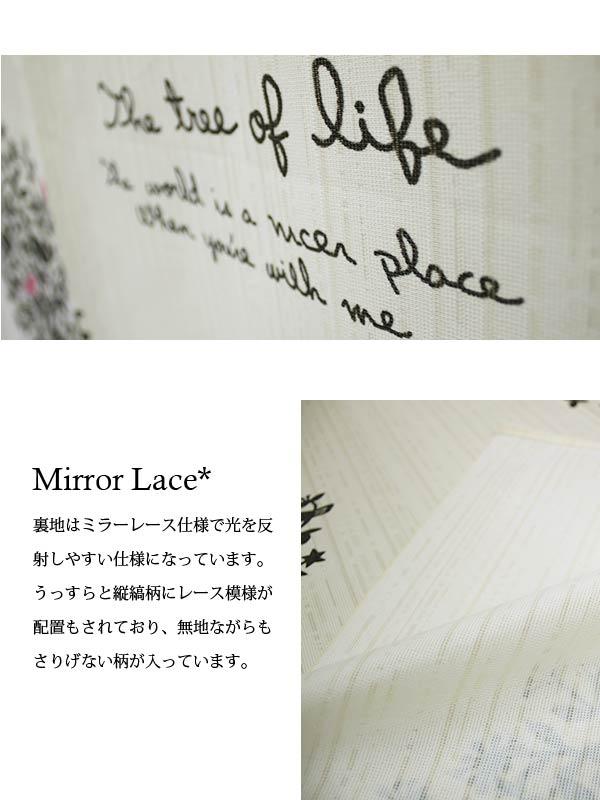 The tree of life
The world is a nicer place
When you're with me
Mirror Lace*
裏地はミラーレース仕様で光を反
射しやすい仕様になっています。
うっすらと縦縞柄にレース模様が
配置もされており、無地ながらも
さりげない柄が入っています。